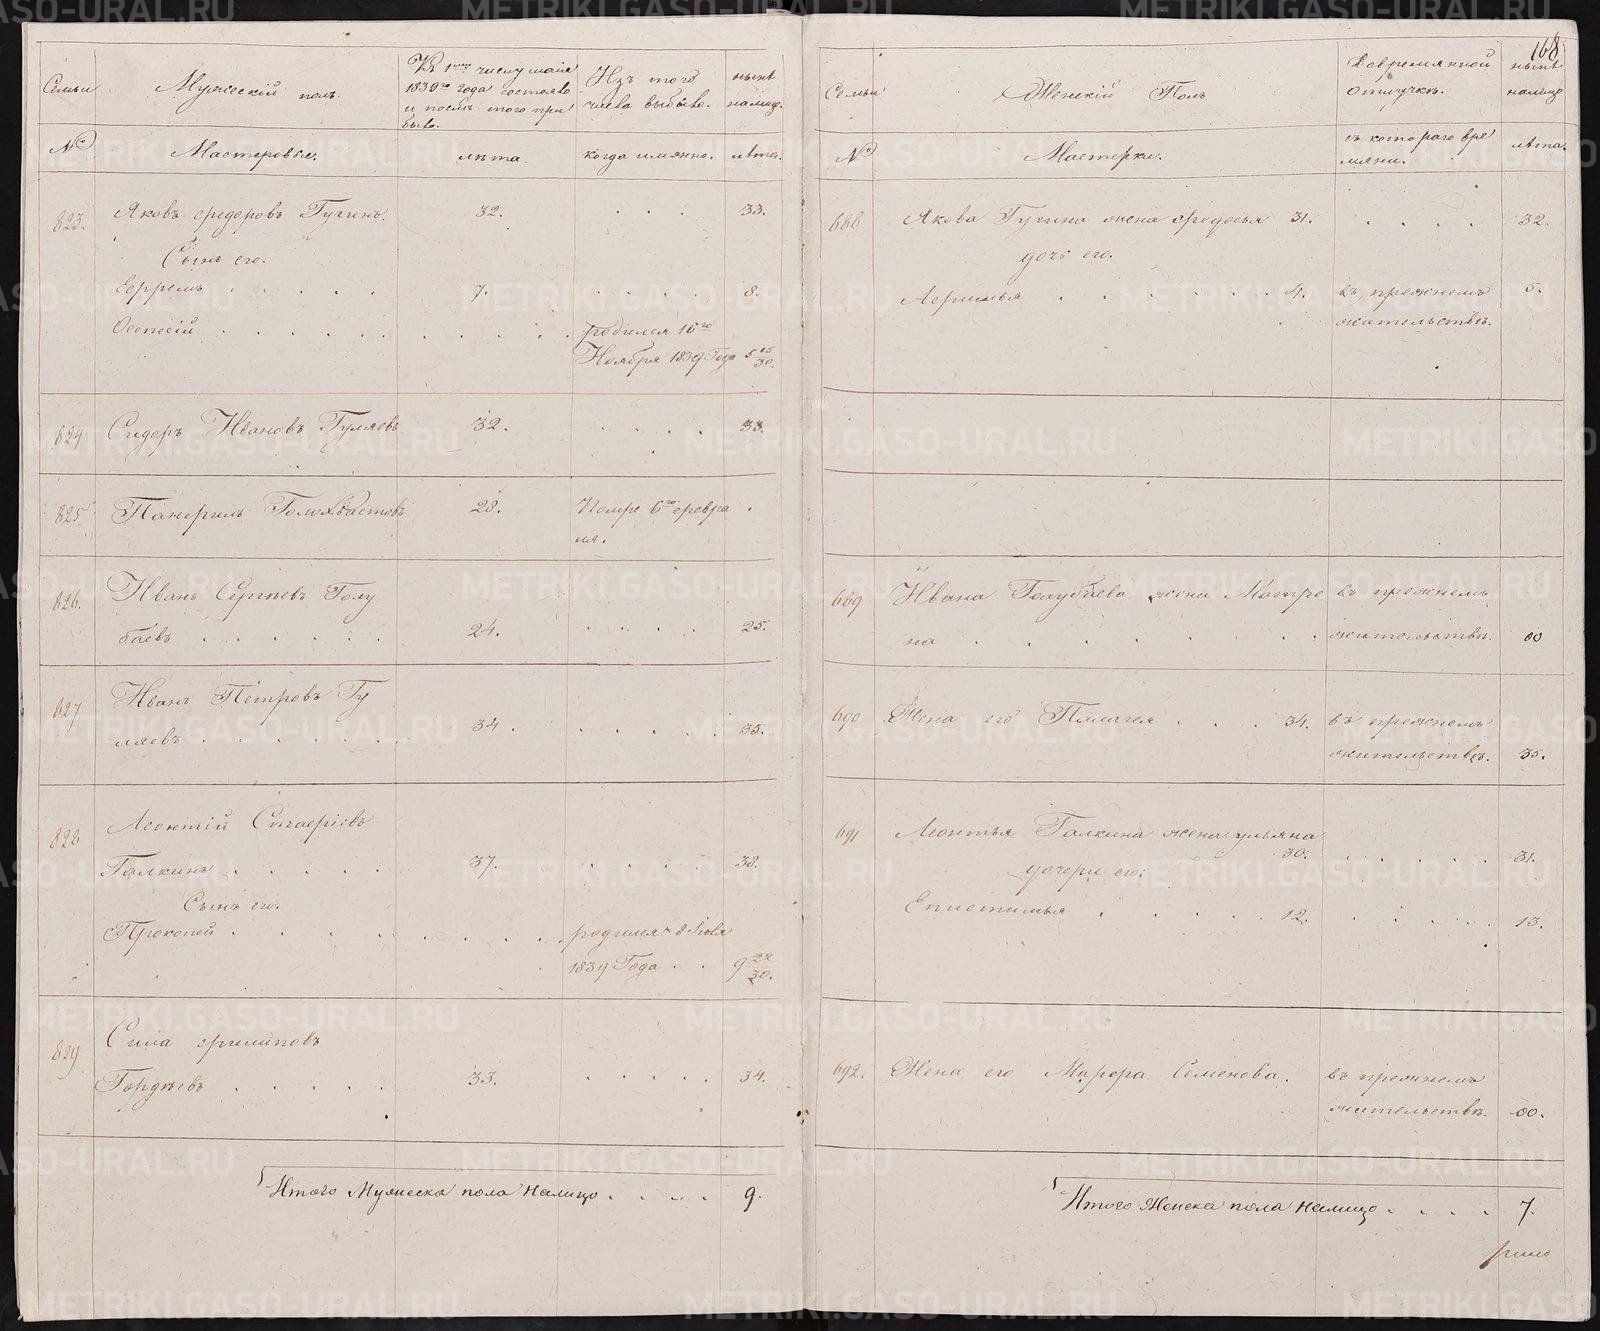 168
Семьи
Мужескій полъ.
Къ 1му числу маія
1839го года состояло
и послѣ того при
было.
Изъ того
числа выбыло.
нынѣ
налицо.
№
Мастеровые.
лѣта.
когда имянно.
лѣта.
823.
Яковъ Федоровъ Гугинъ.
32.
33.
Сынъ его.
Ефремъ
7.
8.
родился 16го
Ноября 1839 Года 5 15/30.
824
Сидоръ Ивановъ Гуляевъ
32.
33.
825
Панфилъ Голохвастовъ
28.
Померъ 6го Февра
ля.
826.
Иванъ Сергѣевъ Голу
баевъ
24.
25.
827
Иванъ Петровъ Гу
ляевъ
34.
35.
828
Леонтій
Галкинъ
37.
38.
Сынъ его.
Прокопей
родился 8 Іюля
1839 Года
9 22/30.
829
Сила Филиповъ
Гордѣевъ
33.
34.
Итого Мужеска пола налицо
9.
Семьи
Женскій Полъ
Во временной
отлучкѣ.
нынѣ
налицо
№
Мастерки.
съ котораго вре
мяни.
лѣта.
688
Якова Гугина жена Федосья 31.
32.
дочь его.
4.
въ прежнемъ
5.
жительствѣ.
689
Ивана Голубаева жена Матре
въ прежнемъ
на
жительствѣ.
00
690
Жена его Палагея
34.
въ прежнемъ
жительствѣ.
35.
691
Леонтья Галкина жена Ульяна
30.
31.
дочери его:
Епистимья
12.
13.
692.
Жена его Марфа Семенова.
въ прежнемъ
жительствѣ.
00.
Итого Женска пола налицо
7.
METRIKI.GASO-URAL.RU